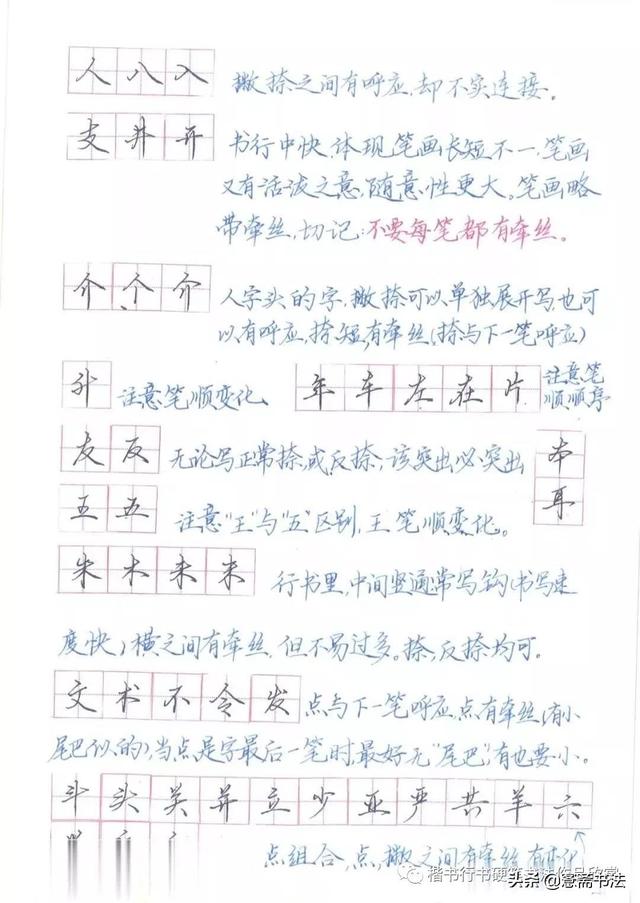 人八入 撇捺之间有呼应,却不实连接。
支井开 书行中快,体现笔画长短不一,笔画
又有活泼之意,随意性更大。笔画略
带牵丝,切记:不要每笔都有牵丝。
介个介 人字头的字,撇捺可以单独展开写,也可
以有呼应,捺短,有牵丝(捺与下一笔呼应)
升 注意笔顺变化 年车左在片 注意笔
顺顺序
友反 无论写正常捺,或反捺,该突出必突出 本
耳
王五 注意“王”与“五”区别,王笔顺变化。
朱木未末 行书里,中间竖通常写钩(书写速
度快)横之间有牵丝,但不易过多。捺,反捺均可。
文术不令发 点与下一笔呼应,点有牵丝(有小
尾巴似的),当点是字最后一笔时,最好无“尾巴”,有也要小。
斗头关并立少亚严共羊六
点组合,点,撇之间有牵丝,有变化
楷书行书硬笔书法作品欣赏
头条@慧斋书法